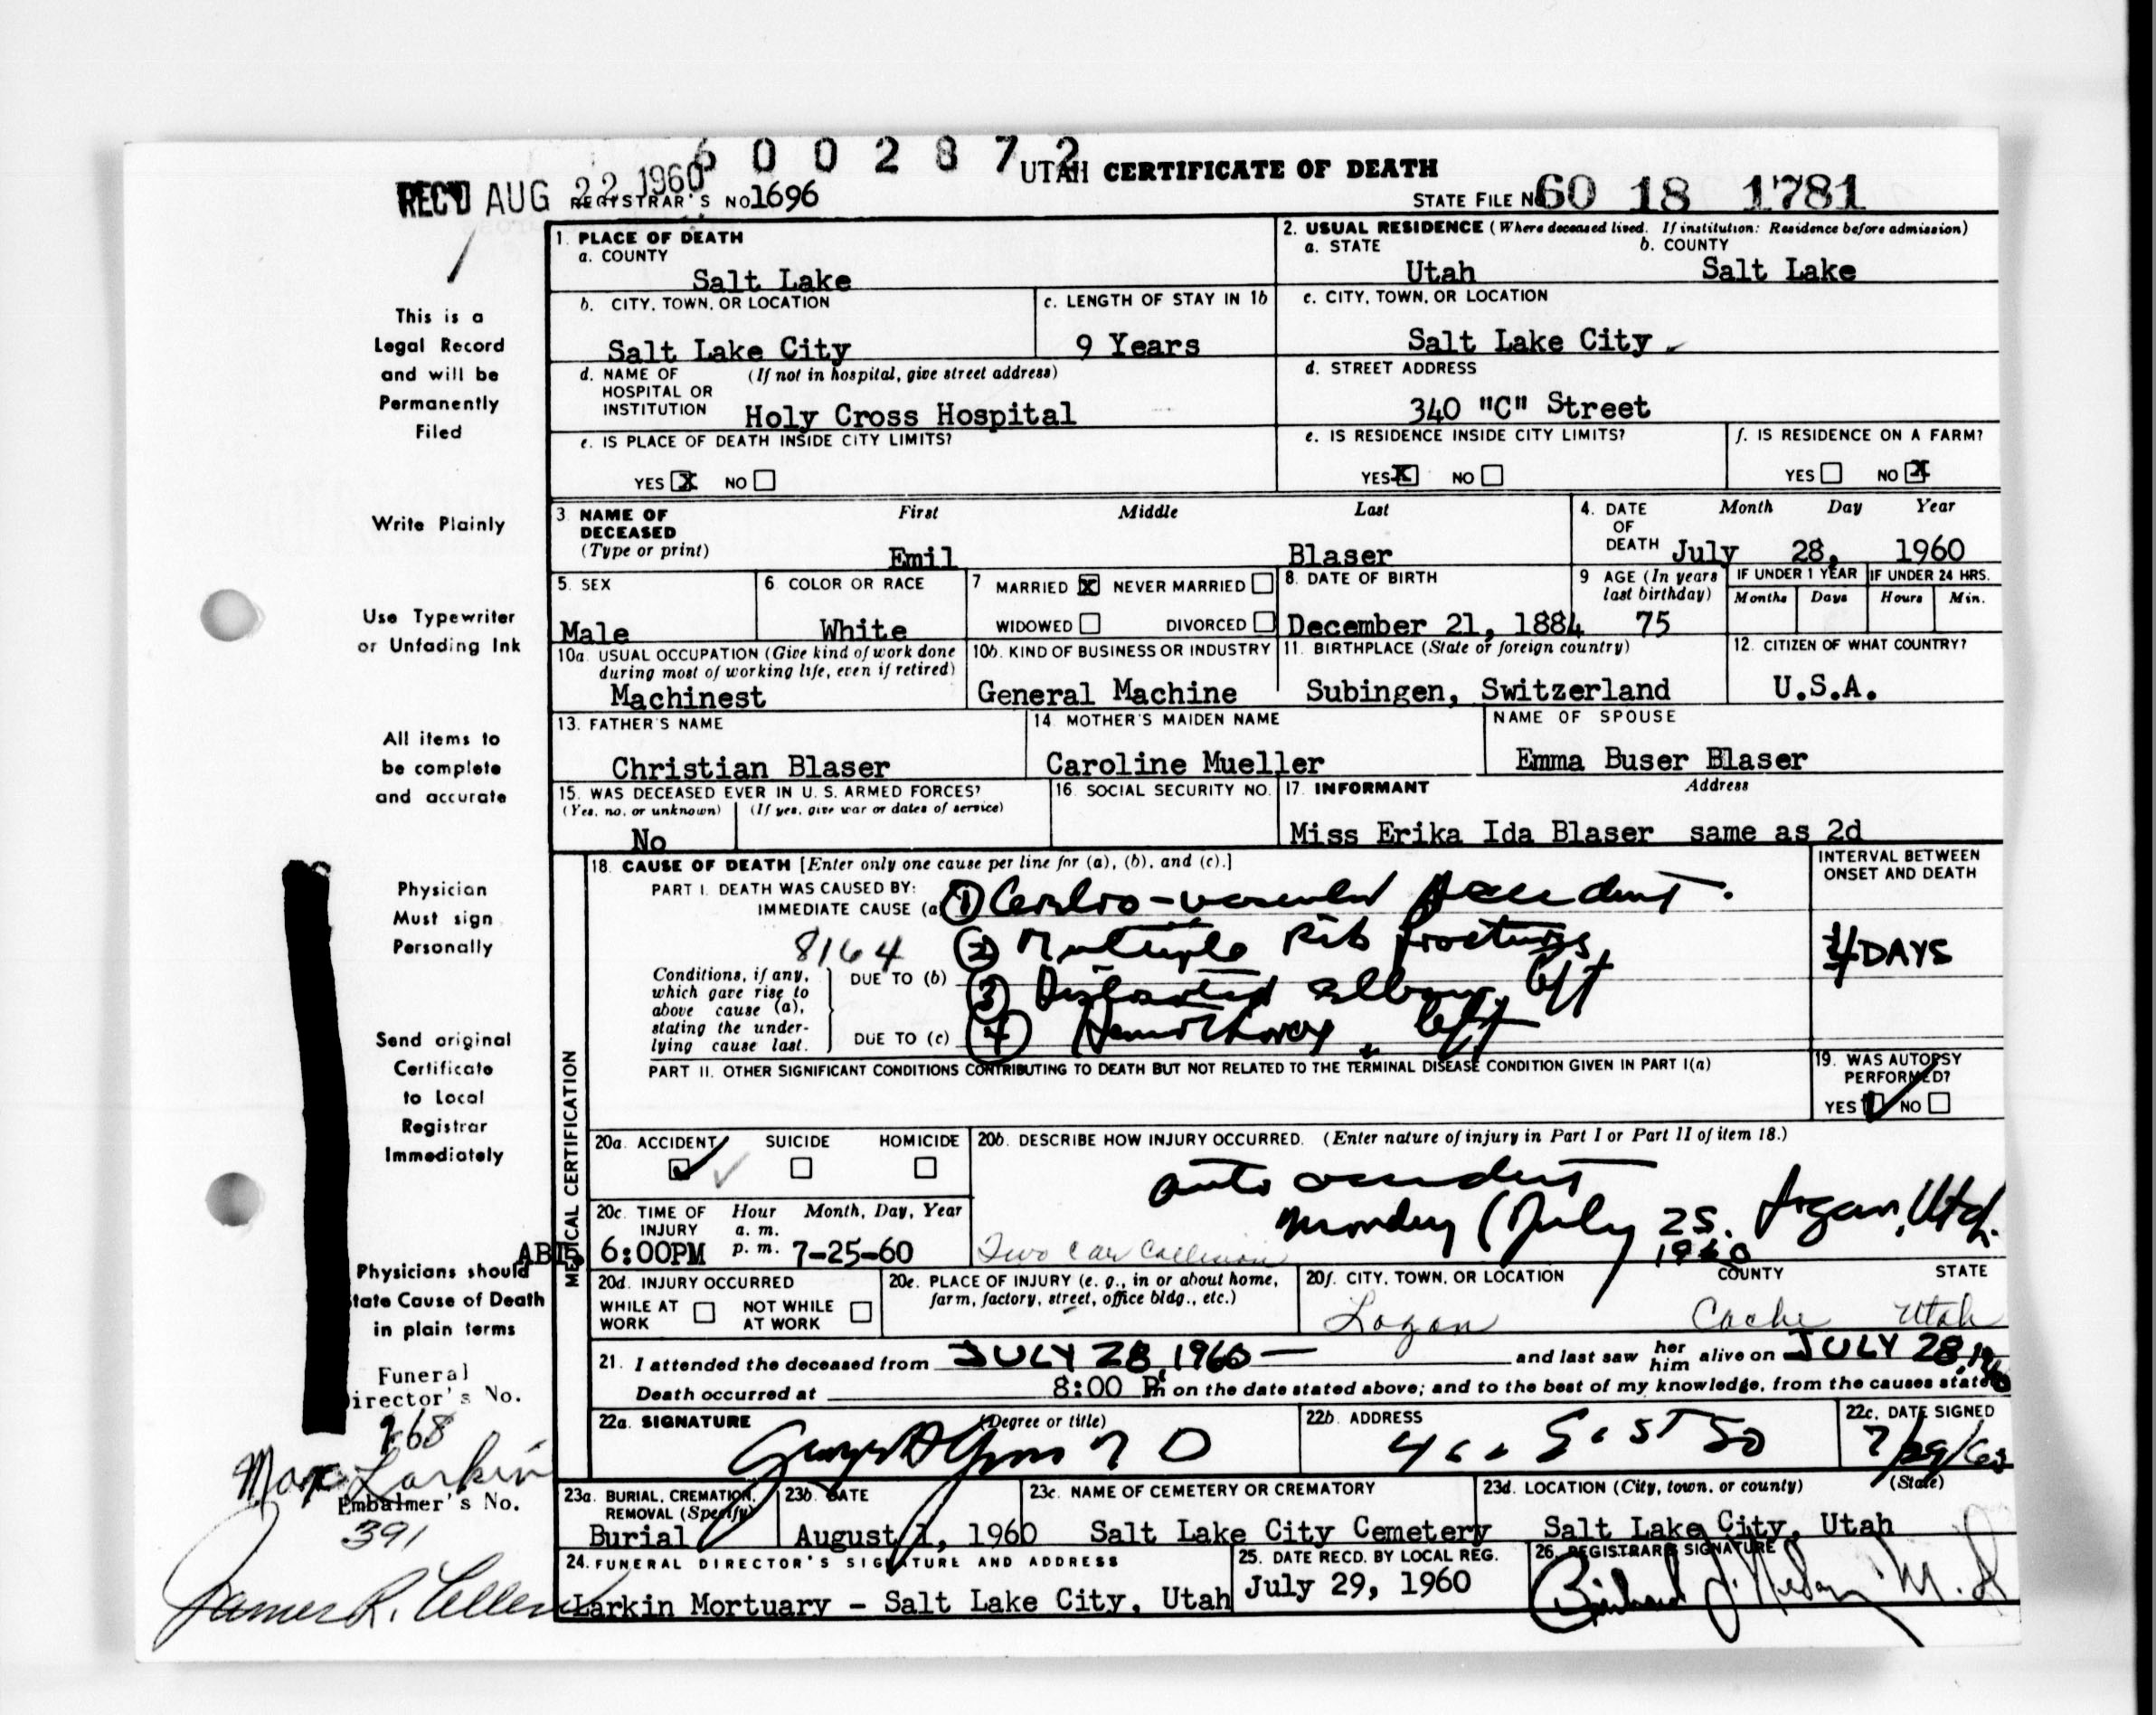 6002872
UTAH CERTIFICATE OF DEATH
REC'D AUG 22 1960
REGISTRAR'S NO 1696
STATE FILE NO 60 18 1781
This is a
Legal Record
and will be
Permanently
Filed
Write Plainly
Use Typewriter
or Unfading Ink
All items to
be complete
and accurate
Physician
Must sign
Personally
Send original
Certificate
to Local
Registrar
Immediately
Physicians should
tate Cause of Death
in plain terms
Funeral
irector's No.
168
Max Larkin
Embalmer's No.
391
James R.
1. PLACE OF DEATH
a. COUNTY
Salt Lake
2. USUAL RESIDENCE (Where deceased lived. If institution: Residence before admission)
a. STATE b. COUNTY
Utah Salt Lake
b. CITY, TOWN, OR LOCATION
Salt Lake City
c. LENGTH OF STAY IN 1b
9 Years
c. CITY, TOWN, OR LOCATION
Salt Lake City
d. NAME OF (If not in hospital, give street address)
HOSPITAL OR
INSTITUTION Holy Cross Hospital
d. STREET ADDRESS
340 "C" Street
e. IS PLACE OF DEATH INSIDE CITY LIMITS?
YES X NO
e. IS RESIDENCE INSIDE CITY LIMITS?
YES X NO
f. IS RESIDENCE ON A FARM?
YES NO X
3. NAME OF First Middle Last
DECEASED
(Type or print) Emil Blaser
4. DATE Month Day Year
OF
DEATH July 28, 1960
5. SEX
Male
6. COLOR OR RACE
White
7 MARRIED X NEVER MARRIED
WIDOWED DIVORCED
8. DATE OF BIRTH
December 21, 1884
9 AGE (In years
last birthday)
75
IF UNDER 1 YEAR IF UNDER 24 HRS.
Months Days Hours Min.
10a. USUAL OCCUPATION (Give kind of work done
during most of working life, even if retired)
Machinest
10b. KIND OF BUSINESS OR INDUSTRY
General Machine
11. BIRTHPLACE (State or foreign country)
Subingen, Switzerland
12. CITIZEN OF WHAT COUNTRY?
U.S.A.
13. FATHER'S NAME
Christian Blaser
14. MOTHER'S MAIDEN NAME
Caroline Mueller
NAME OF SPOUSE
Emma Buser Blaser
15. WAS DECEASED EVER IN U. S. ARMED FORCES?
(Yes, no, or unknown) (If yes, give war or dates of service)
No
16. SOCIAL SECURITY NO.
17. INFORMANT Address
Miss Erika Ida Blaser same as 2d
MEDICAL CERTIFICATION
18. CAUSE OF DEATH [Enter only one cause per line for (a), (b), and (c).]
PART I. DEATH WAS CAUSED BY:
IMMEDIATE CAUSE (a) 1 Cerebro-vascular Accident.
8164 2 Multiple Rib fractures
Conditions, if any,
which gave rise to
above cause (a),
stating the under-
lying cause last.
DUE TO (b)
3 Dislocated elbow, left
DUE TO (c) 4 Hemothorax, left
INTERVAL BETWEEN
ONSET AND DEATH
4 DAYS
PART II. OTHER SIGNIFICANT CONDITIONS CONTRIBUTING TO DEATH BUT NOT RELATED TO THE TERMINAL DISEASE CONDITION GIVEN IN PART I(a)
19. WAS AUTOPSY
PERFORMED?
YES ✓ NO
20a. ACCIDENT SUICIDE HOMICIDE
✓
20b. DESCRIBE HOW INJURY OCCURRED. (Enter nature of injury in Part I or Part II of item 18.)
auto accident
Monday (July 25, 1960 Logan, Utah.
Two Car Collision
20c. TIME OF Hour Month, Day, Year
INJURY a. m.
ABT. 6:00PM p. m. 7-25-60
20d. INJURY OCCURRED
WHILE AT WORK NOT WHILE AT WORK
20e. PLACE OF INJURY (e. g., in or about home,
farm, factory, street, office bldg., etc.)
20f. CITY, TOWN, OR LOCATION COUNTY STATE
Logan Cache Utah
21. I attended the deceased from JULY 28, 1960 — and last saw her him alive on JULY 28,
Death occurred at 8:00 P m on the date stated above; and to the best of my knowledge, from the causes stated
22a. SIGNATURE (Degree or title)
22b. ADDRESS
22c. DATE SIGNED
7/29/60
23a. BURIAL, CREMATION,
REMOVAL (Specify)
Burial
23b. DATE
August 1, 1960
23c. NAME OF CEMETERY OR CREMATORY
Salt Lake City Cemetery
23d. LOCATION (City, town, or county) (State)
Salt Lake City, Utah
24. FUNERAL DIRECTOR'S SIGNATURE AND ADDRESS
Larkin Mortuary - Salt Lake City, Utah
25. DATE RECD. BY LOCAL REG.
July 29, 1960
26. REGISTRAR'S SIGNATURE